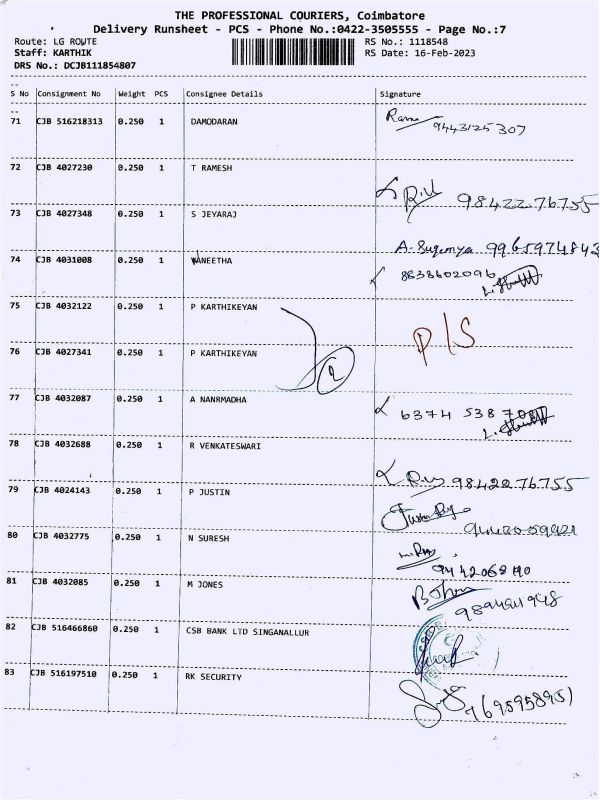 THE PROFESSIONAL COURIERS, Coimbatore
Delivery Runsheet - PCS - Phone No.:0422-3505555 - Page No.:7
Route: LG ROUTE RS No.: 1118548
Staff: KARTHIK RS Date: 16-Feb-2023
DRS No.: DCJB111854807
S No Consignment No Weight PCS Consignee Details Signature
71 CJB 516218313 0.250 1 DAMODARAN
9443125307
72 CJB 4027230 0.250 1 T RAMESH
98422 76755
73 CJB 4027348 0.250 1 S JEYARAJ
A. Suganya 9965974843
74 CJB 4031008 0.250 1 VANEETHA
8838602096
75 CJB 4032122 0.250 1 P KARTHIKEYAN
P/S
76 CJB 4027341 0.250 1 P KARTHIKEYAN
2
77 CJB 4032087 0.250 1 A NANRMADHA
6374 538
78 CJB 4032688 0.250 1 R VENKATESWARI
9842276755
79 CJB 4024143 0.250 1 P JUSTIN
80 CJB 4032775 0.250 1 N SURESH
81 CJB 4032085 0.250 1 M JONES
82 CJB 516466860 0.250 1 CSB BANK LTD SINGANALLUR
83 CJB 516197510 0.250 1 RK SECURITY